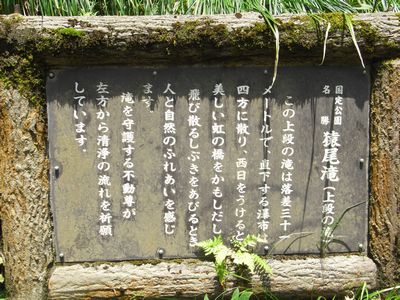 国定公園
名勝 猿尾滝（上段の滝）
この上段の滝は落差三十一
メートルで、直下する瀑布は
四方に散り、西日をうけると
美しい虹の橋をかもしだし、
飛び散るしぶきをあびるとき
人と自然のふれあいを感じ
ます。
滝を守護する不動尊が
左方から清浄の流れを祈願
しています。